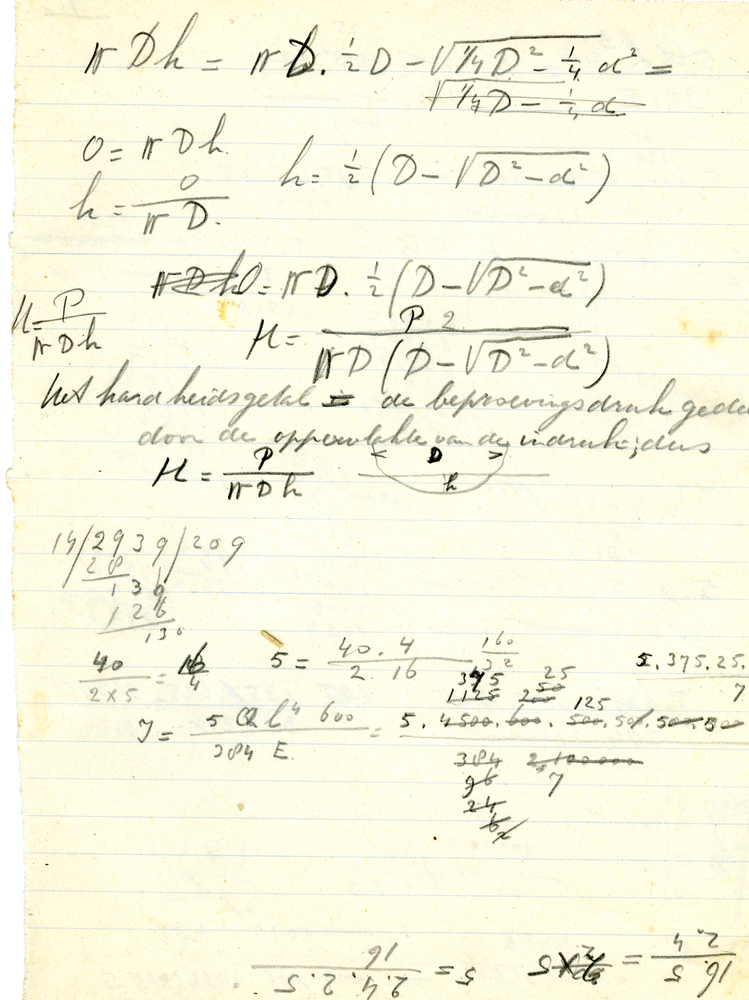 π D h = π D. ½ D − √(1/4 D² − 1/4 d²) =
√(1/4 D − 1/4 d)
O = π D h.
h = ½ (D − √(D² − d²))
h = O / π D.
π D h O = π D. ½ (D − √(D² − d²))
H = P / π D h
H = P 2 / π D (D − √(D² − d²))
Het hardheidsgetal = de beproevingsdruk gede
door de oppervlakte van de indruk; dus
H = P / π D h
D
h
14/2939/209
28
139
126
130
40 / 2×5 = 16/4
5 = 40.4 / 2.16
160 / 32
5.375.25.
7
375 25
1125 250 50 125
J = 5 Q l⁴ 600 / 384 E. = 5. 4500. 600. 500. 50. 500. 500
384 2.100000
96 7
24
6
16.5 / 2.4 =
5 = 2.4.2.5 / 16